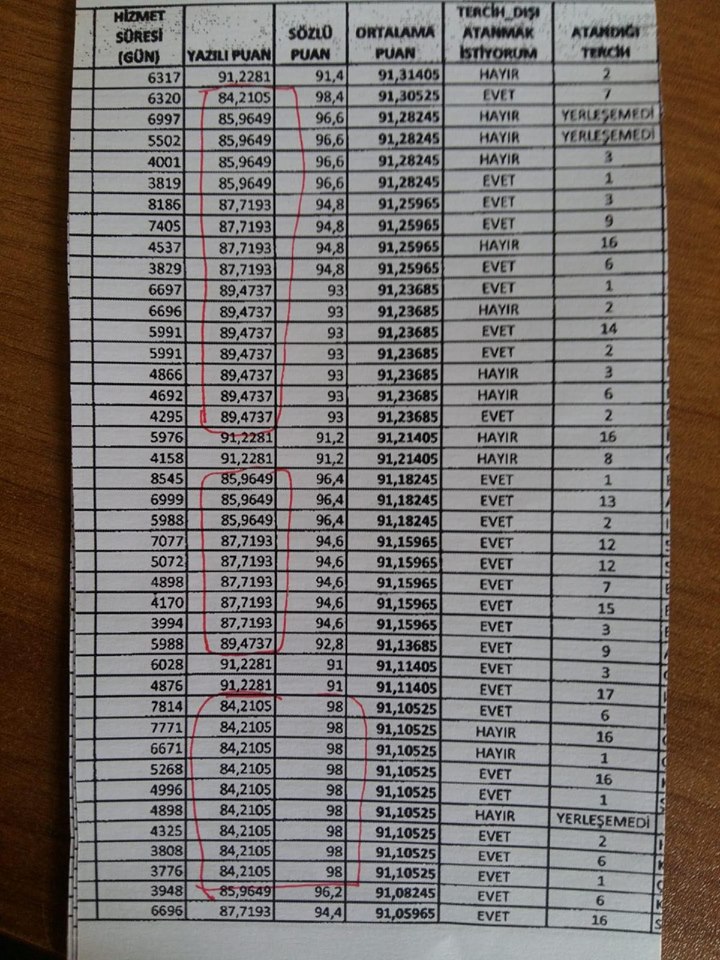 HİZMET SÜRESİ (GÜN) YAZILI PUAN SÖZLÜ PUAN ORTALAMA PUAN TERCİH_DIŞI ATANMAK İSTİYORUM ATANDIĞI TERCİH
6317 91,2281 91,4 91,31405 HAYIR 2
6320 84,2105 98,4 91,30525 EVET 7
6997 85,9649 96,6 91,28245 HAYIR YERLEŞEMEDİ
5502 85,9649 96,6 91,28245 HAYIR YERLEŞEMEDİ
4001 85,9649 96,6 91,28245 HAYIR 3
3819 85,9649 96,6 91,28245 EVET 1
8186 87,7193 94,8 91,25965 EVET 3
7405 87,7193 94,8 91,25965 EVET 9
4537 87,7193 94,8 91,25965 HAYIR 16
3829 87,7193 94,8 91,25965 EVET 6
6697 89,4737 93 91,23685 EVET 1
6696 89,4737 93 91,23685 HAYIR 2
5991 89,4737 93 91,23685 EVET 14
5991 89,4737 93 91,23685 EVET 2
4866 89,4737 93 91,23685 HAYIR 3
4692 89,4737 93 91,23685 HAYIR 6
4295 89,4737 93 91,23685 EVET 2
5976 91,2281 91,2 91,21405 HAYIR 16
4158 91,2281 91,2 91,21405 HAYIR 8
8545 85,9649 96,4 91,18245 EVET 1
6999 85,9649 96,4 91,18245 EVET 13
5988 85,9649 96,4 91,18245 EVET 2
7077 87,7193 94,6 91,15965 EVET 12
5072 87,7193 94,6 91,15965 EVET 12
4898 87,7193 94,6 91,15965 EVET 7
4170 87,7193 94,6 91,15965 EVET 15
3994 87,7193 94,6 91,15965 EVET 3
5988 89,4737 92,8 91,13685 EVET 9
6028 91,2281 91 91,11405 EVET 3
4876 91,2281 91 91,11405 EVET 17
7814 84,2105 98 91,10525 EVET 6
7771 84,2105 98 91,10525 HAYIR 16
6671 84,2105 98 91,10525 HAYIR 1
5268 84,2105 98 91,10525 EVET 16
4996 84,2105 98 91,10525 EVET 1
4898 84,2105 98 91,10525 HAYIR YERLEŞEMEDİ
4325 84,2105 98 91,10525 EVET 2
3808 84,2105 98 91,10525 EVET 6
3776 84,2105 98 91,10525 EVET 1
3948 85,9649 96,2 91,08245 EVET 6
6696 87,7193 94,4 91,05965 EVET 16